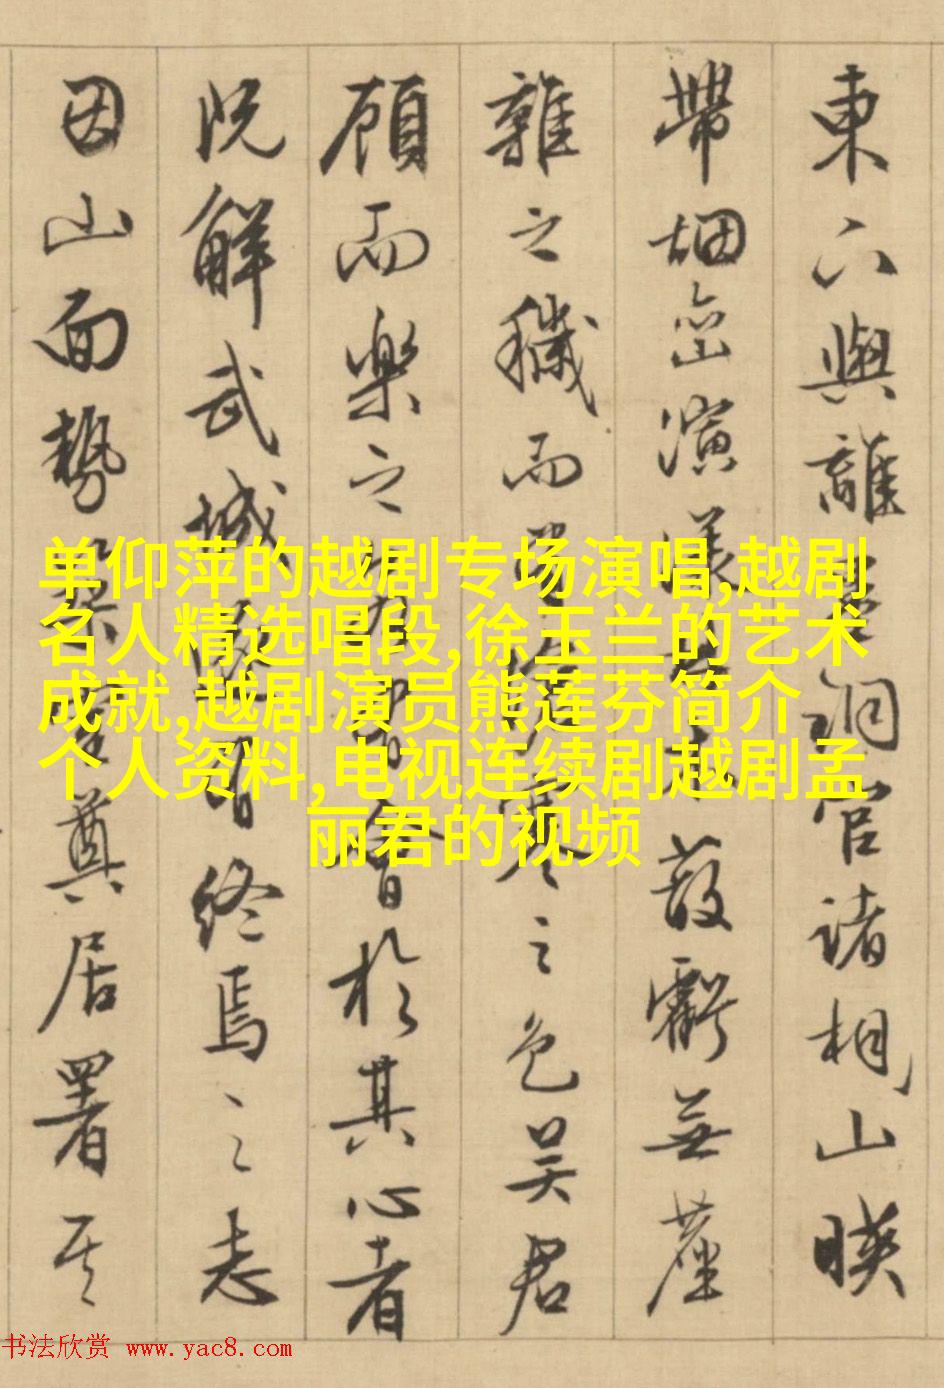 東六與離
銅官諸相山暎
帶烟巒演漾
蔽虧無塵
雜之穢而
之色吴君
顧而樂之
於其心者
既解武城
終焉之志
因山面勢
奠居署其
单仰萍的越剧专场演唱,越剧
名人精选唱段,徐玉兰的艺术
成就,越剧演员熊莲芬简介
个人资料,电视连续剧越剧孟
丽君的视频
书法欣赏 www.yac8.com